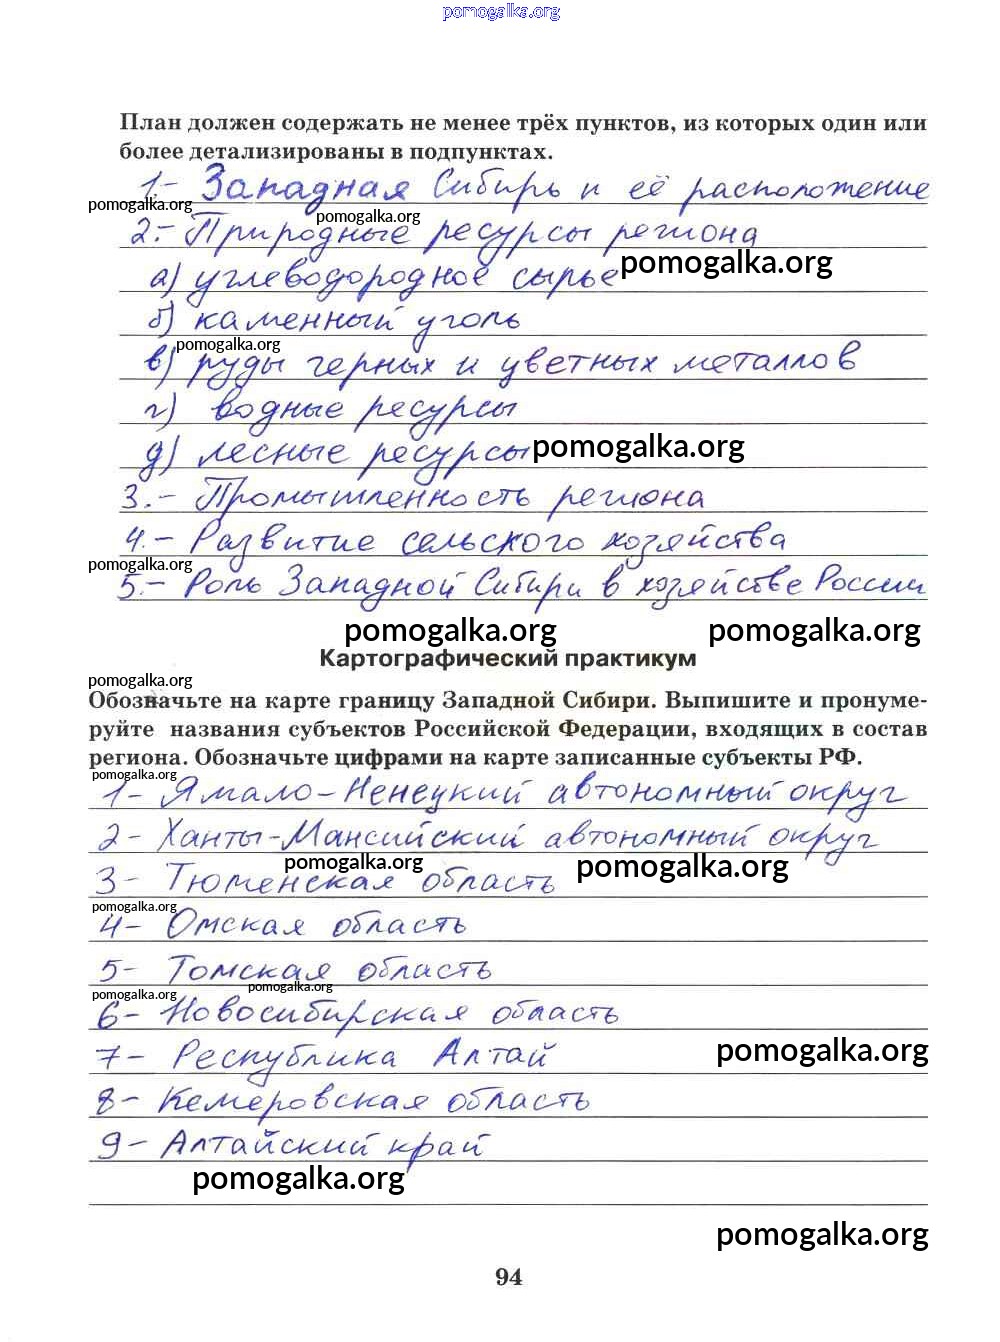 pomogalka.org
План должен содержать не менее трёх пунктов, из которых один или
более детализированы в подпунктах.
1.- Западная Сибирь и её расположение
pomogalka.org
pomogalka.org
2.- Природные ресурсы региона
pomogalka.org
а) углеводородное сырьё
б) каменный уголь
pomogalka.org
в) руды черных и цветных металлов
г) водные ресурсы
д) лесные ресурсы
pomogalka.org
3.- Промышленность региона
4.- Развитие сельского хозяйства
pomogalka.org
5.- Роль Западной Сибири в хозяйстве России
pomogalka.org
pomogalka.org
Картографический практикум
pomogalka.org
Обозначьте на карте границу Западной Сибири. Выпишите и пронуме-
руйте названия субъектов Российской Федерации, входящих в состав
региона. Обозначьте цифрами на карте записанные субъекты РФ.
pomogalka.org
1- Ямало-Ненецкий автономный округ
2- Ханты-Мансийский автономный округ
pomogalka.org
pomogalka.org
3- Тюменская область
pomogalka.org
4- Омская область
5- Томская область
pomogalka.org
pomogalka.org
6- Новосибирская область
7- Республика Алтай
pomogalka.org
8- Кемеровская область
9- Алтайский край
pomogalka.org
pomogalka.org
94